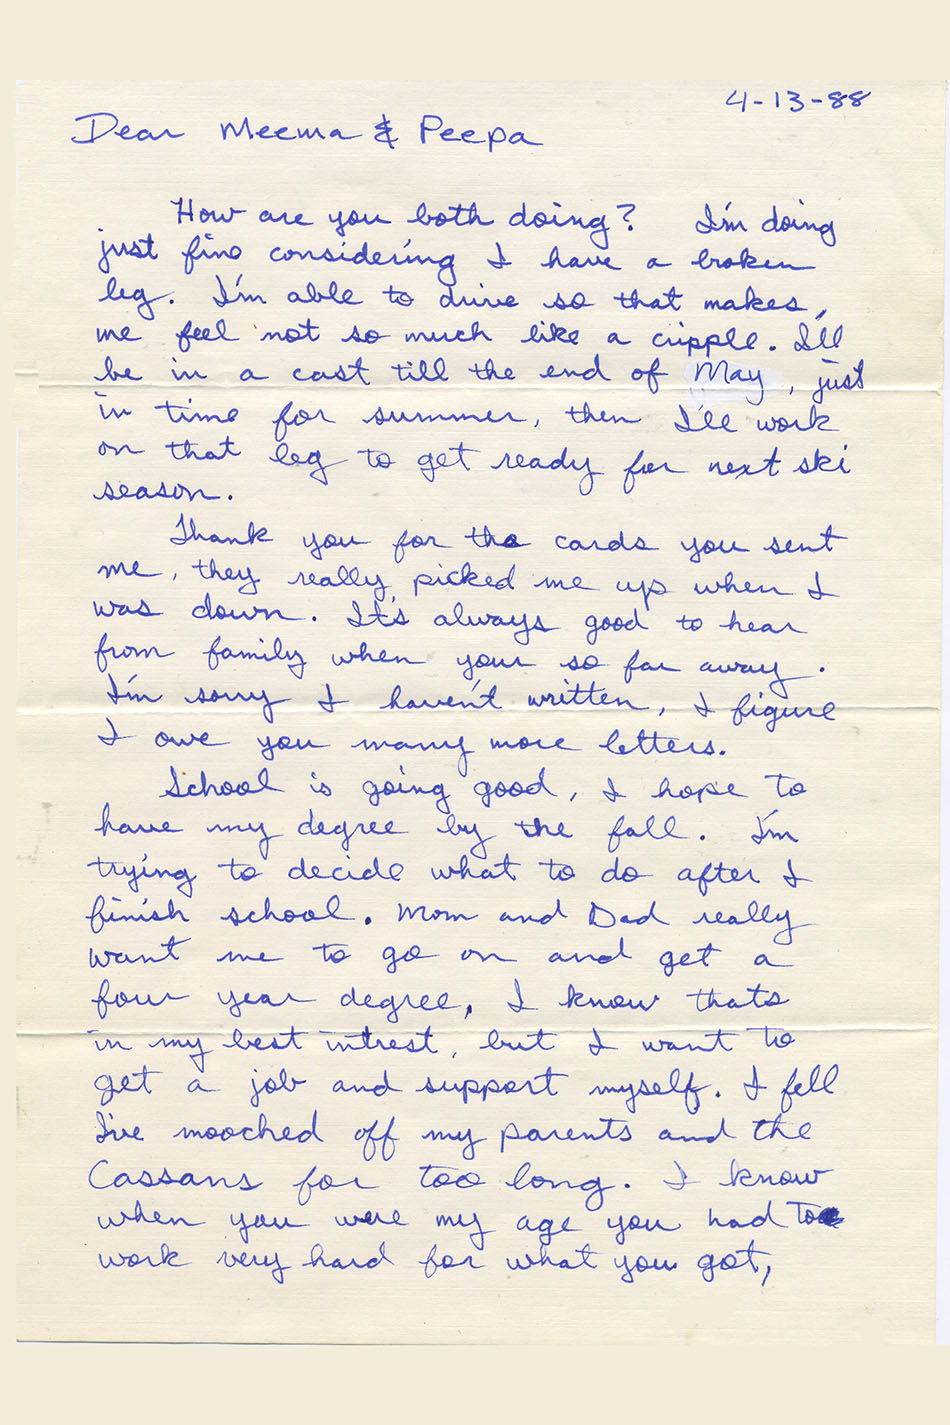 4-13-88
Dear Meema & Peepa
How are you both doing? I'm doing
just fine considering I have a broken
leg. I'm able to drive so that makes
me feel not so much like a cripple. I'll
be in a cast till the end of May, just
in time for summer, then I'll work
on that leg to get ready for next ski
season.
Thank you for the cards you sent
me, they really picked me up when I
was down. It's always good to hear
from family when your so far away.
I'm sorry I haven't written, I figure
I owe you many more letters.
School is going good, I hope to
have my degree by the fall. I'm
trying to decide what to do after I
finish school. Mom and Dad really
want me to go on and get a
four year degree, I know thats
in my best intrest, but I want to
get a job and support myself. I fell
I've mooched off my parents and the
Cassans for too long. I know
when you were my age you had to
work very hard for what you got,